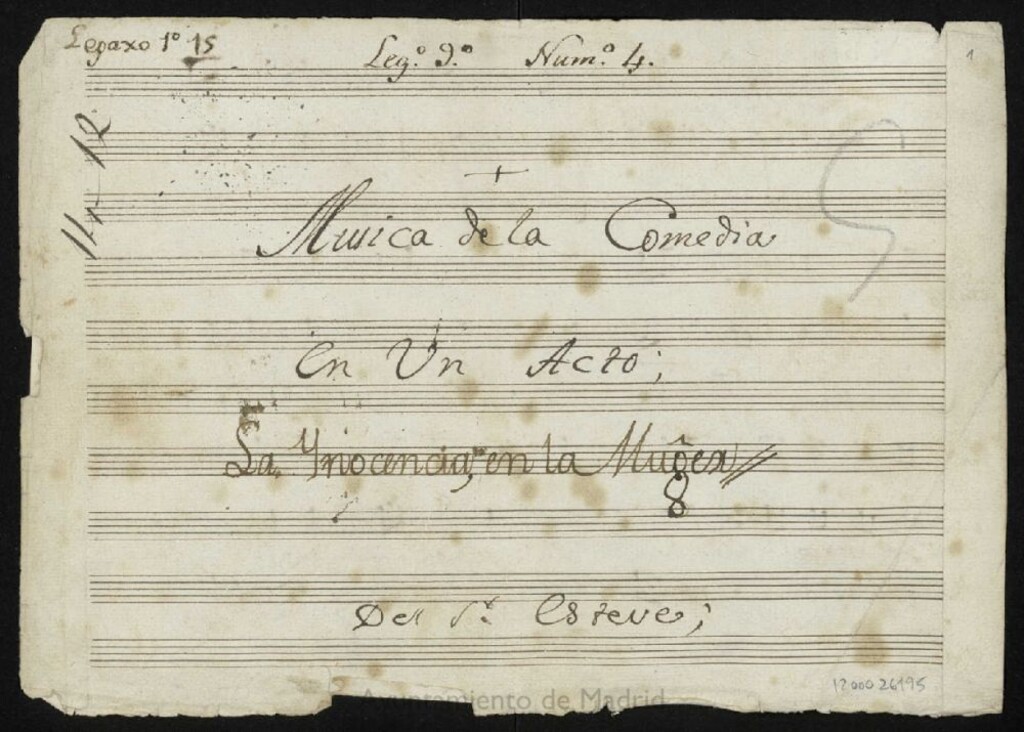 Legaxo 1º 15
Leg.º 9.º Num.º 4.
1
11-12
Musica de la Comedia
en Un Acto;
La Ynocencia, en la Muger
8
Del Sr. Esteve;
1200026195
Ayuntamiento de Madrid